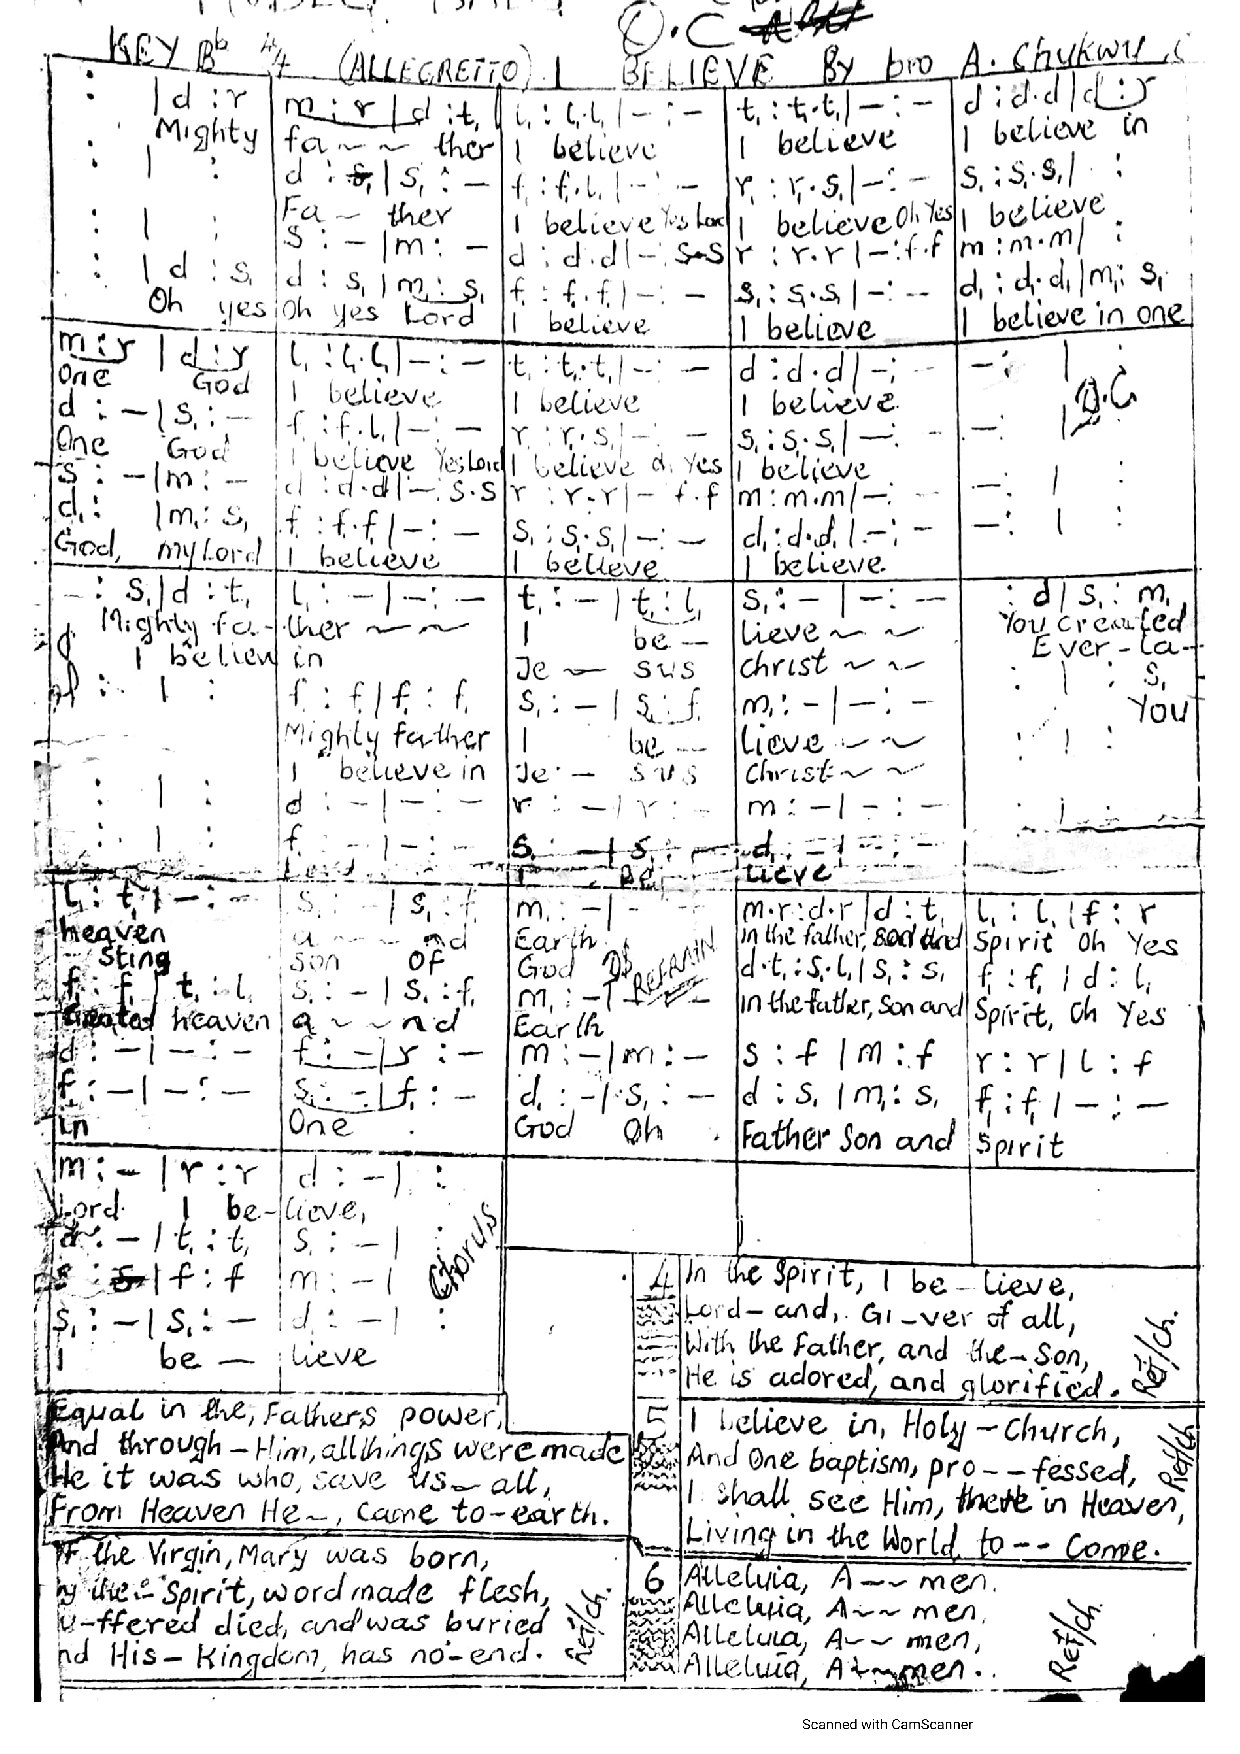 KEY Bb 4/4 (ALLEGRETTO) I BELIEVE By bro A. Chukwu
: | d : r m : r | d : t, l, : l,.l, | – : – t, : t,.t, | – : – d : d.d | d : r
Mighty fa~~ther I believe I believe I believe in
: | : d : s, | s, : – f, : f,.l, | – : – r, : r,.s, | – : – s, : s,.s, | :
Fa~ther I believe Yes Lord I believe Oh Yes I believe
: | : s : – | m : – d : d.d | – : s.s r : r.r | – : f.f m : m.m | :
: | d : s, d : s, | m, : s, f, : f,.f, | – : – s, : s,.s, | – : – d, : d,.d, | m, : s,
Oh yes Oh yes Lord I believe I believe I believe in one
m : r | d : r l, : l,.l, | – : – t, : t,.t, | – : – d : d.d | – : – – : | :
One God I believe I believe I believe D.C
d : – | s, : – f, : f,.l, | – : – r, : r,.s, | – : – s, : s,.s, | – : – – : | :
One God I believe Yes Lord I believe Yes I believe
s : – | m : – d : d.d | – : s.s r : r.r | – f.f m : m.m | – : – : | :
d, : | m, : s, f, : f,.f, | – : – s, : s,.s, | – : – d, : d,.d, | – : – – : | :
God, my Lord I believe I believe I believe
– : s, | d : t, l, : – | – : – t, : – | t, : l, s, : – | – : – : d | s, : m,
Mighty fa–ther ~~ I be– lieve ~~ You created
I believe in Je~sus Christ ~~ Ever–la–
: | : f, : f, | f, : f, s, : – | s, : f, m, : – | – : – : | : s,
Mighty father I be– lieve ~~ You
I believe in Je–sus Christ ~~
: | : d : – | – : – r : – | r : – m : – | – : – : | :
: | : f, : – | – : – s, : – | s, : – d, : – | – : –
Lord I Be lieve
l, : t, | – : – s, : – | s, : f, m, : – | – m.r : d.r | d : t, l, : l, | f : r
heaven a~~nd Earth In the father, son and Spirit Oh Yes
–Sting son of God DS REFRAIN
f, : f, | t, : l, s, : – | s, : f, m, : – | – d.t, : s,.l, | s, : s, f, : f, | d : l,
Created heaven a~~nd Earth In the father, Son and Spirit, Oh Yes
d : – | – : – f : – | r : – m : – | m : – s : f | m : f r : r | l : f
f, : – | – : – s, : – | f, : – d, : – | s, : – d : s, | m, : s, f, : f, | – : –
in One God Oh Father Son and Spirit
m : – | r : r d : – | :
Lord I be–lieve,
d : – | t, : t, s, : – | :
f : f m : – |
s, : – | s, : – d, : – | :
I be–lieve
Chorus
Equal in the, Fathers power,
And through–Him, all things were made
He it was who, save us– all,
From Heaven He–, came to–earth.
the Virgin, Mary was born,
the– Spirit, word made flesh,
ffered died, and was buried
nd His– Kingdom, has no–end. Ref/ch.
4 In the Spirit, I be–lieve,
Lord–and, Gi–ver of all,
With the Father, and the–Son,
He is adored, and glorified. Ref/ch.
5 I believe in, Holy–Church,
And One baptism, pro––fessed,
I shall see Him, there in Heaven,
Living in the World to –– Come. Ref/ch
6 Alleluia, A–~men.
Alleluia, A–~men,
Alleluia, A–~men,
Alleluia, A–~men.. Ref/ch.
Scanned with CamScanner